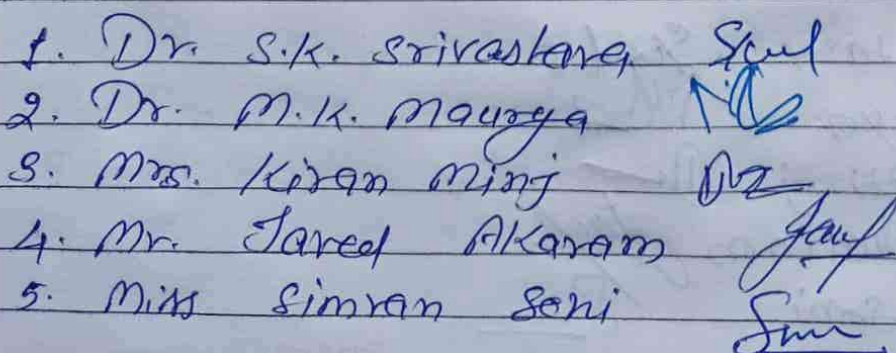 1. Dr. S.K. Srivastava
2. Dr. M.K. Maurya
3. Mrs. Kiran Minj
4. Mr. Javed Akaram
5. Miss Simran Soni